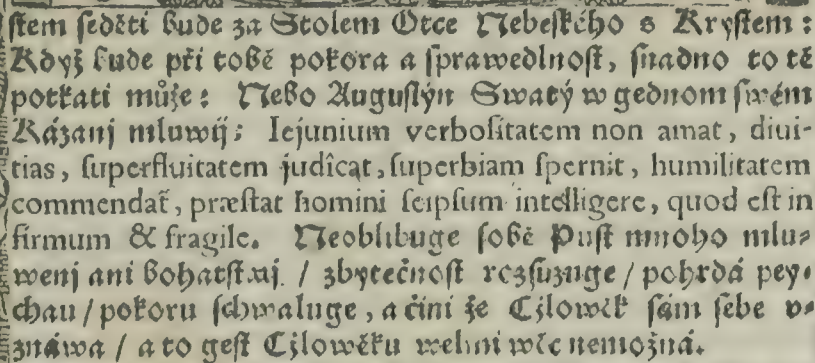 ſtem ſeděti bude za Stolem Otce Nebeſkého s Kryſtem:
Když bude při tobě pokora a ſprawedlnoſt, ſnadno to tě
potkati může: Nebo Auguſtýn Swatý w gednom ſwém
Kázanj mluwij: Iejunium verboſitatem non amat, diui-
tias, ſuperfluitatem judîcat, ſuperbiam ſpernit, humilitatem
commendat, præſtat homini ſeipſum intelligere, quod eſt in
firmum & fragile. Neoblibuge ſobě Puſt mnoho mlu-
wenj ani Bohatſtwj / zbytečnoſt rozſuzuge / pohrdá pey-
chau / pokoru ſchwaluge, a činí že Cžlowěk ſám ſebe v-
znáwa / a to geſt Cžlowěku welmi wěc nemožná.